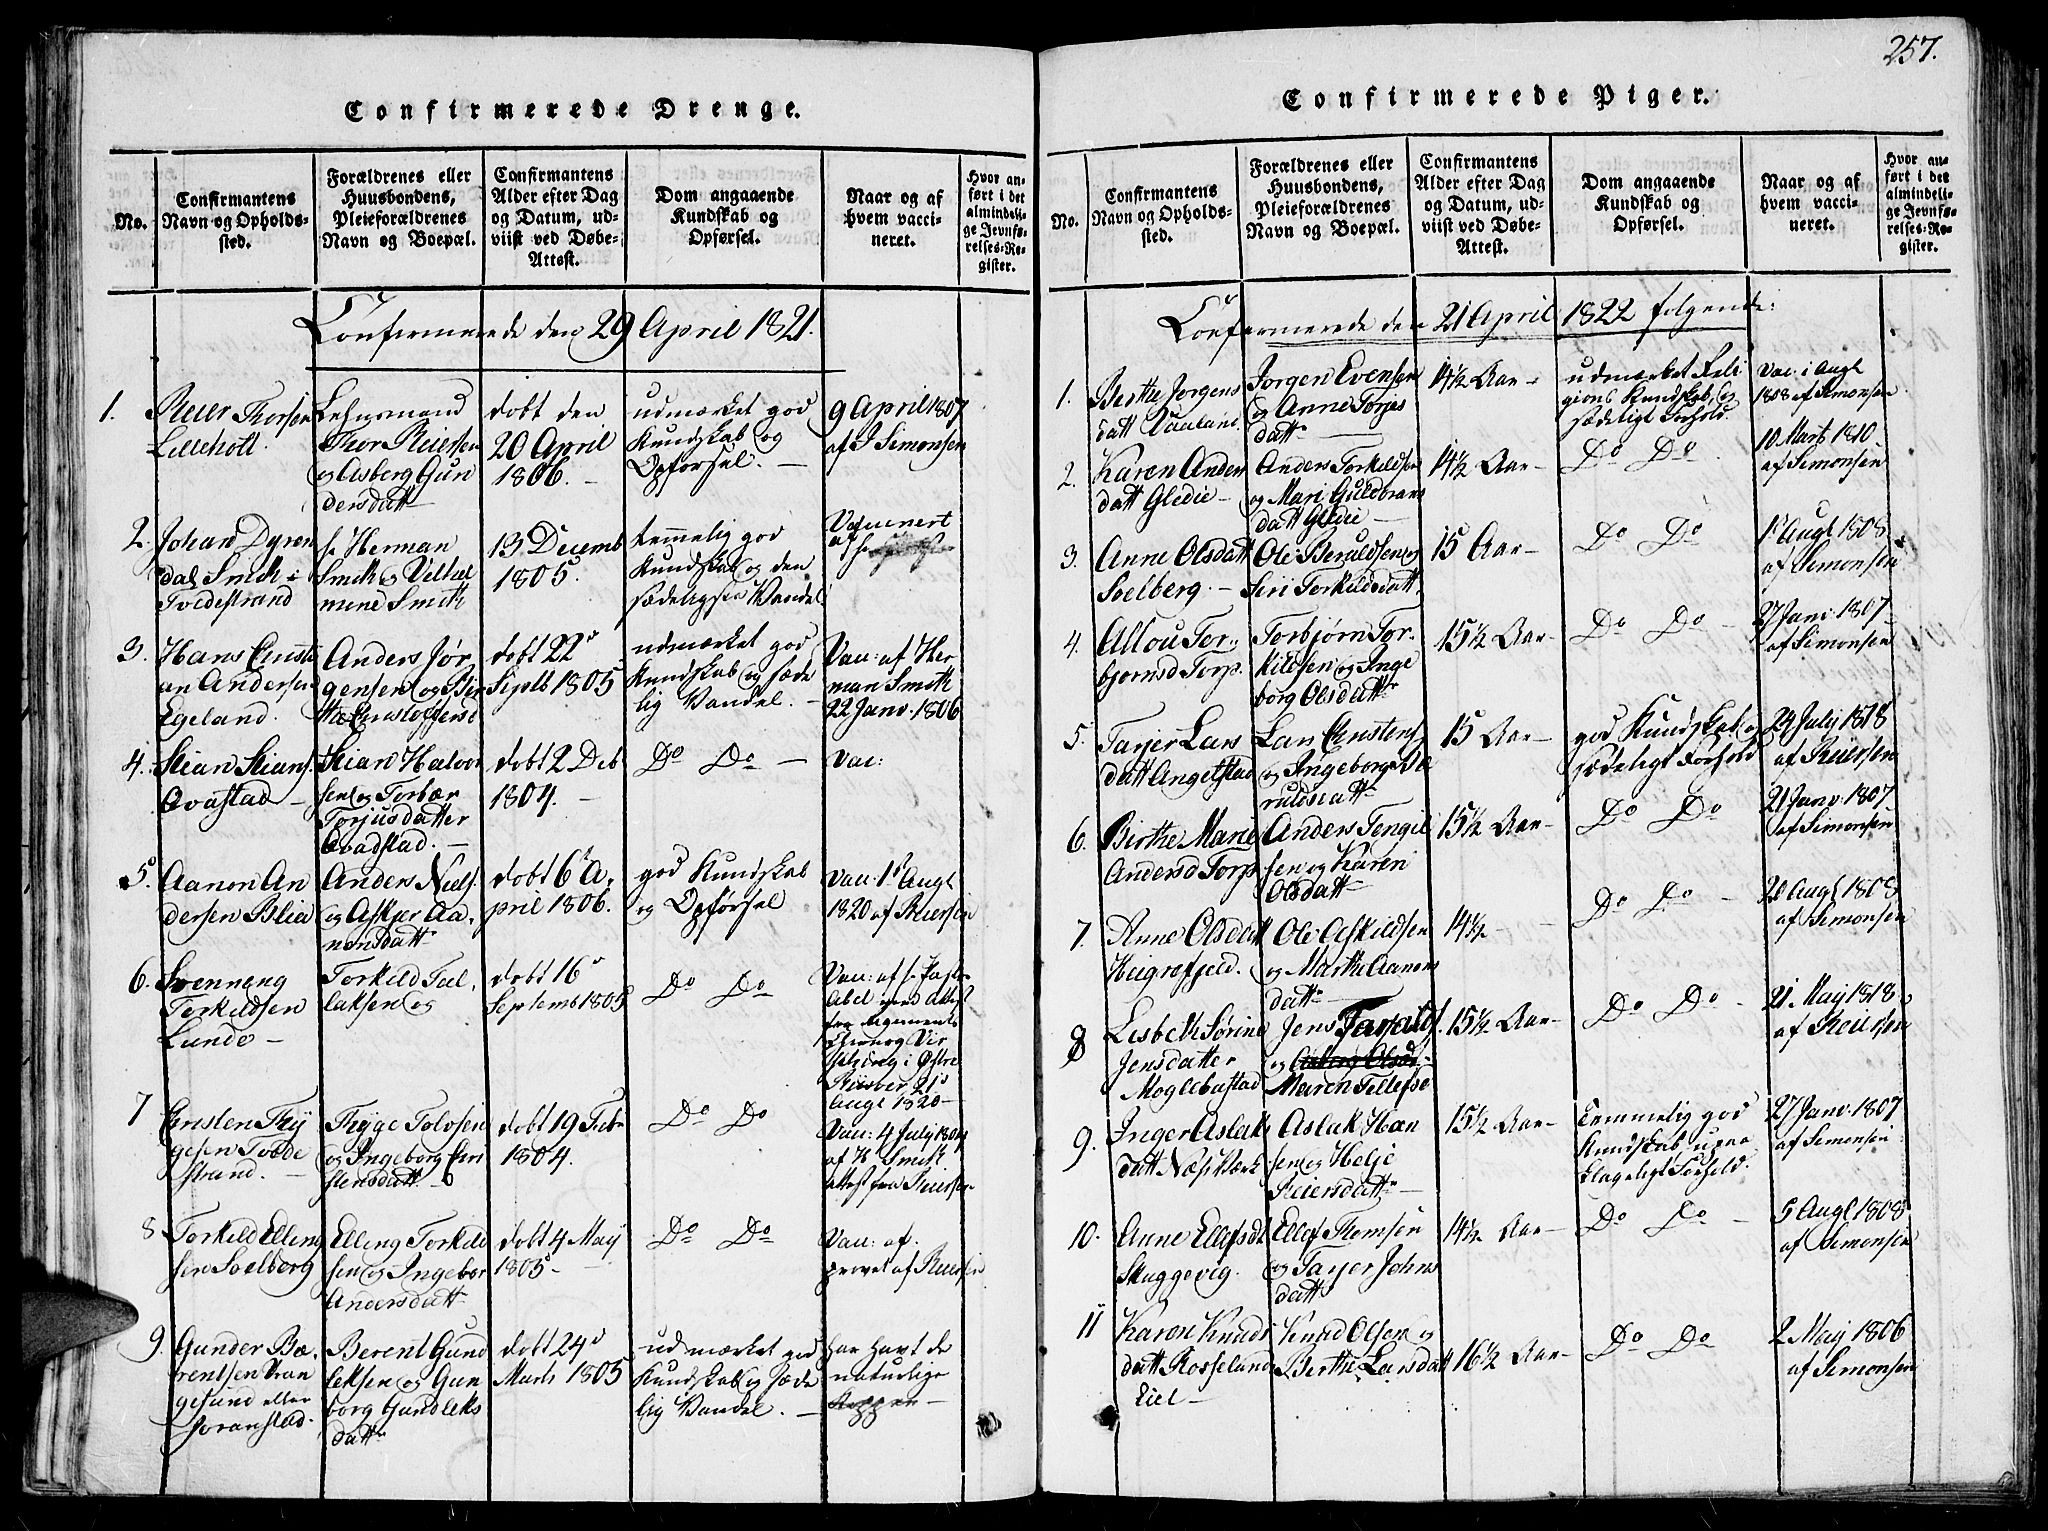 257.
Confirmerede Drenge.
No.
Confirmantens
Navn og Opholds-
sted.
Forældrenes eller
Huusbondens,
Pleieforældrenes
Navn og Boepæl.
Confirmantens
Alder efter Dag
og Datum, ud-
viist ved Døbe-
Attest.
Dom angaaende
Kundskab og
Opførsel.
Naar og af
hvem vacci-
neret.
Hvor an-
ført i det
almindeli-
ge Jevnfø-
relses-Re-
gister.
Confirmerede den 29 April 1821.
1.
Reier Thorsen
Lilleholt.
Lehnsmand
Thor Reiersen
og Asberg Gun
dersdatt
dobt den
20 April
1806.
udmærket god
Kundskab og
Opforsel.
9 April 1807
af J Simonsen
2.
Johan Dyren
dal Smith i
Tvedestrand
Hr Herman
Smith og Vilhel
mine Smith
13 Decemb
1805.
temmelig god
Kundskab og den
sædeligste Vandel.
af
3.
Hans Christi
an Andersen
Egeland.
Anders Jör
gensen og Bir
the Christoffersd
dobt 22
Septb 1805
udmærket god
Kundskab og sæde
lig Vandel.
Vac: af Her
man Smith
22 Janv. 1806
4.
Stian Stians.
Qvastad
Stian Halvor
sen og Torbær
Torjusdatter
Qvadstad.
dobt 2 Deb
1804.
Do Do
Vac:
5.
Aanon An
dersen Blia
Anders Niels.
og Askjer Aa.
nonsdatt
dobt 6 A.
pril 1806.
god Kundskab
og Opförsel
Vac: 1 Augt
1820 af Reiersen
6.
Svenneng
Torkildsen
Lunde
Torkild Tal.
laksen og
dobt 16
Septemb 1805
Do Do
Vac: af Hr
Abel
Augt 1820
7
Christen Thy
gesen Tvede
strand.
Thyge Tolvsen
og Ingeborg Chri
stensdatt
dobt 19 Febr
1804.
Do Do
Vac: 4 July 1804
af H Smith
attest fra Reiersen
8
Torkild Elling
sen Solberg
Elling Torkild
sen og Ingebor
Andersdatt
dobt 4 May
1805
Do Do
Vac: af.
prövet af Reiersen
9.
Gunder Bæ.
rentsen Vran
gesund eller
Berent Gund
leksen og Gun
borg Gundleks
datt
dobt 24
Marts 1805
udmærket god
Kundskab og sæde
lig Vandel.
har havt de
naturlige
Kopper
Confirmerede Piger.
No.
Confirmantens
Navn og Opholds-
sted.
Forældrenes eller
Huusbondens,
Pleieforældrenes
Navn og Boepæl.
Confirmantens
Alder efter Dag
og Datum, ud-
viist ved Døbe-
Attest.
Dom angaaende
Kundskab og
Opførsel.
Naar og af
hvem vacci-
neret.
Hvor an-
ført i det
almindeli-
ge Jevnfø-
relses-Re-
gister.
Confirmerede den 21 April 1822 folgende:
1.
Berthe Jorgens
datt Vaaland.
Jorgen Evensen
og Anne Torjes
datt
14½ Aar
udmærket Reli
gions Kundskab og
sædeligt Forhold
Vac: i Augt
1808 af Simonsen
2.
Karen Anders
datt Gledie
Anders Torkildsen
og Mari Guldbrans
datt Gledie
14½ Aar
Do Do
10 Marts 1810
af Simonsen
3.
Anne Olsdatt
Solberg.
Ole Beruldsen og
Siri Torkildsdatt.
15 Aar
Do Do
1 Augt 1808
af Simonsen
4.
Allou Tor.
bjornsd Torp.
Torbjørn Tor.
kildsen og Inge
borg Olsdatt
15½ Aar
Do Do
27 Janv: 1807
af Simonsen
5.
Tarjer Lars
datt Angelstad
Lars Christens.
og Ingeborg Be
ruldsdatt
15 Aar
god Kundskab og
sædeligt Forhold
24 July 1818
af Reiersen
6.
Birthe Marie
Andersd Torp
Anders Tengil
sen og Karen
Olsdatt
15½ Aar
Do Do
21 Janv: 1807
af Simonsen
7.
Anne Olsdatt
Heigrefjeld.
Ole Askildsen
og Marthe Aanons
datt
14½
Do Do
20 Augt 1808
af Simonsen
8
Lisbeth Sørine
Jensdatter
Moglebustad
Jens Tarjeils.
og Asberg Olsd
Maren Tellefsd
15½ Aar
Do Do
21 May 1818
af Reiersen
9.
Inger Aslaks
datt Næs Værk
Aslak Han
sen og Helje
Reiersdatt
15½ Aar
Temmelig god
Kundskab, upaa
klageligt Forhold.
27 Janv: 1807
af Simonsen
10.
Anne Ellefsdt
Skuggevig.
Ellef Thomsen
og Tarjer Johns
datt
14½ Aar
Do Do
5 Augt 1808
af Simonsen
11
Karen Knuds
datt Rosseland
Eiet
Knud Olsen og
Berthe Larsdatt
16½ Aar
Do Do
2 May 1806
af Simonsen